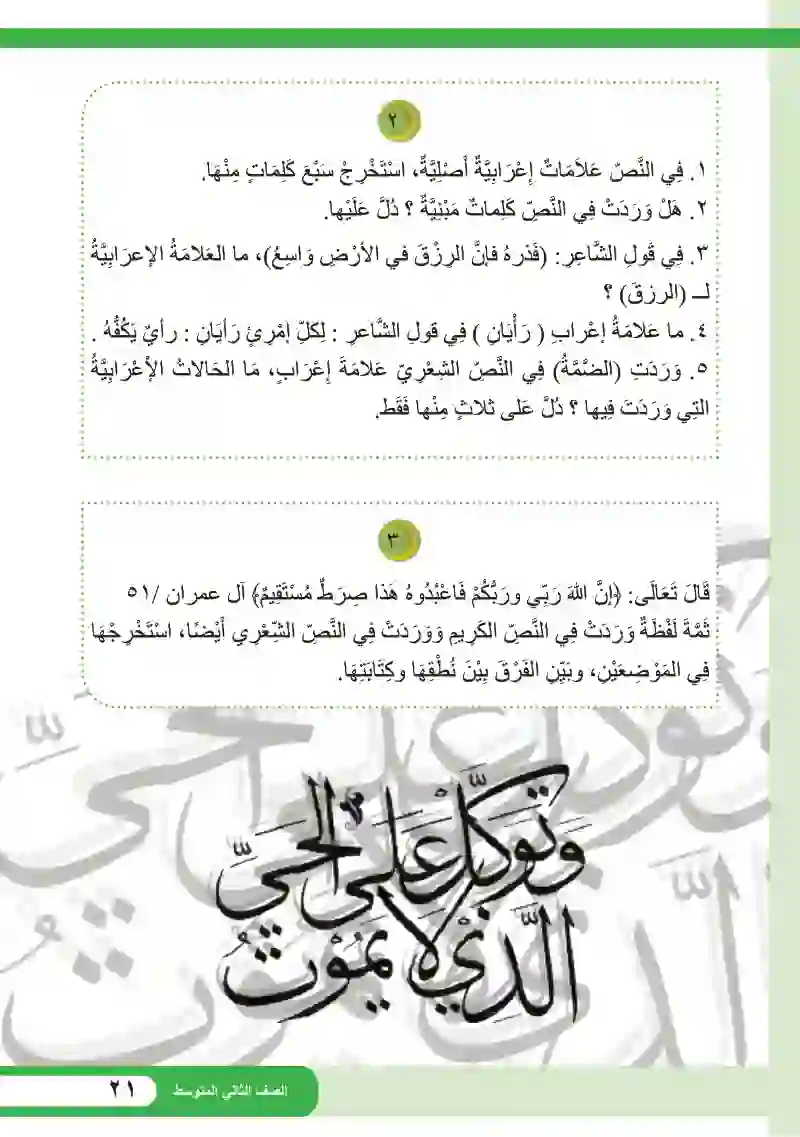 ٢
١. فِي النَّصّ عَلاَمَاتٌ إِعْرَابِيَّةٌ أَصْلِيَّةٌ، اسْتَخْرِجْ سَبْعَ كَلِمَاتٍ مِنْهَا.
٢. هَلْ وَرَدَتْ فِي النَّصِّ كَلِماتٌ مَبْنِيَّةٌ ؟ دُلَّ عَلَيْها.
٣. فِي قَولِ الشَّاعِرِ: (فَذرهُ فإنَّ الرِزْقَ في الأرْضِ وَاسِعُ)، ما العَلامَةُ الإعرَابِيَّةُ
لــ (الرزقَ) ؟
٤. ما عَلامَةُ إعْرابِ ( رَأْيَانِ ) فِي قولِ الشَّاعر : لِكلِّ إمْرِئٍ رَأيَانِ : رأيٌ يَكُفُّهُ .
٥. وَرَدَتِ (الضَّمَّةُ) فِي النَّصّ الشِعْرِيّ عَلامَةَ إِعْرَابٍ، مَا الحَالاتُ الأعْرَابِيَّةُ
التِي وَرَدَتَ فِيها ؟ دُلَّ عَلى ثلاثٍ مِنْها فَقَط.
٣
قَالَ تَعَالَى: ﴿إنَّ اللهَ رَبِّي ورَبُّكُمْ فَاعْبُدُوهُ هَذا صِرَطٌ مُسْتَقِيمٌ﴾ آل عمران /٥١
ثَمَّةَ لَفْظَةٌ وَرَدَتْ فِي النَّصّ الكَرِيمِ وَوَرَدَتْ فِي النَّصّ الشِّعْرِي أيْضًا، اسْتَخْرِجْهَا
فِي المَوْضِعَيْنِ، وبَيِّنِ الفَرْقَ بِيْنَ نُطْقِهَا وكِتَابَتِهَا.
وَتَوَكَّلْ عَلَى الحَيِّ
الَّذِي لَا يَمُوْتُ
الصف الثاني المتوسط
٢١